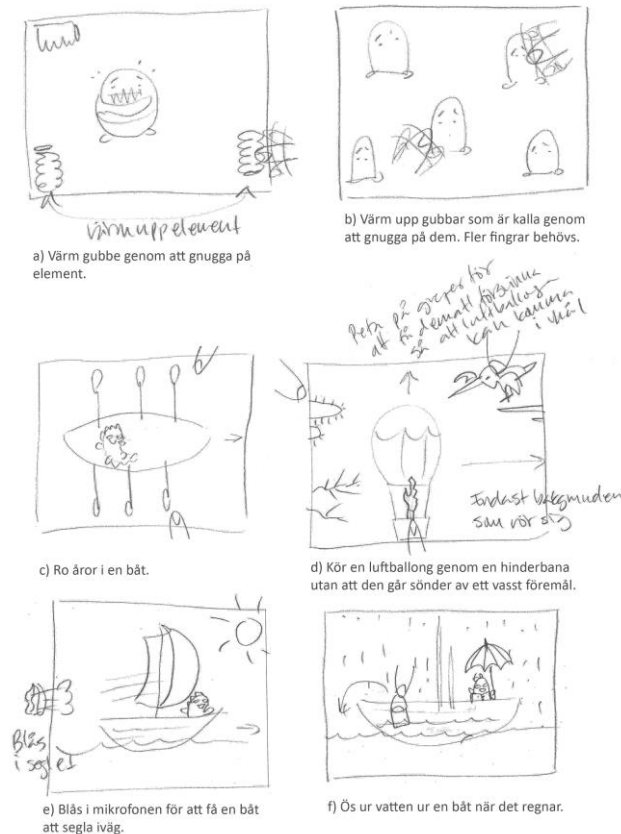 värm upp element
a) Värm gubbe genom att gnugga på
element.
b) Värm upp gubbar som är kalla genom
att gnugga på dem. Fler fingrar behövs.
Peta på
att få dem att försvinna
så att luftballongen
kan komma
i mål
c) Ro åror i en båt.
Endast bakgrunden
som rör sig
d) Kör en luftballong genom en hinderbana
utan att den går sönder av ett vasst föremål.
Blås
i seglet
e) Blås i mikrofonen för att få en båt
att segla iväg.
f) Ös ur vatten ur en båt när det regnar.